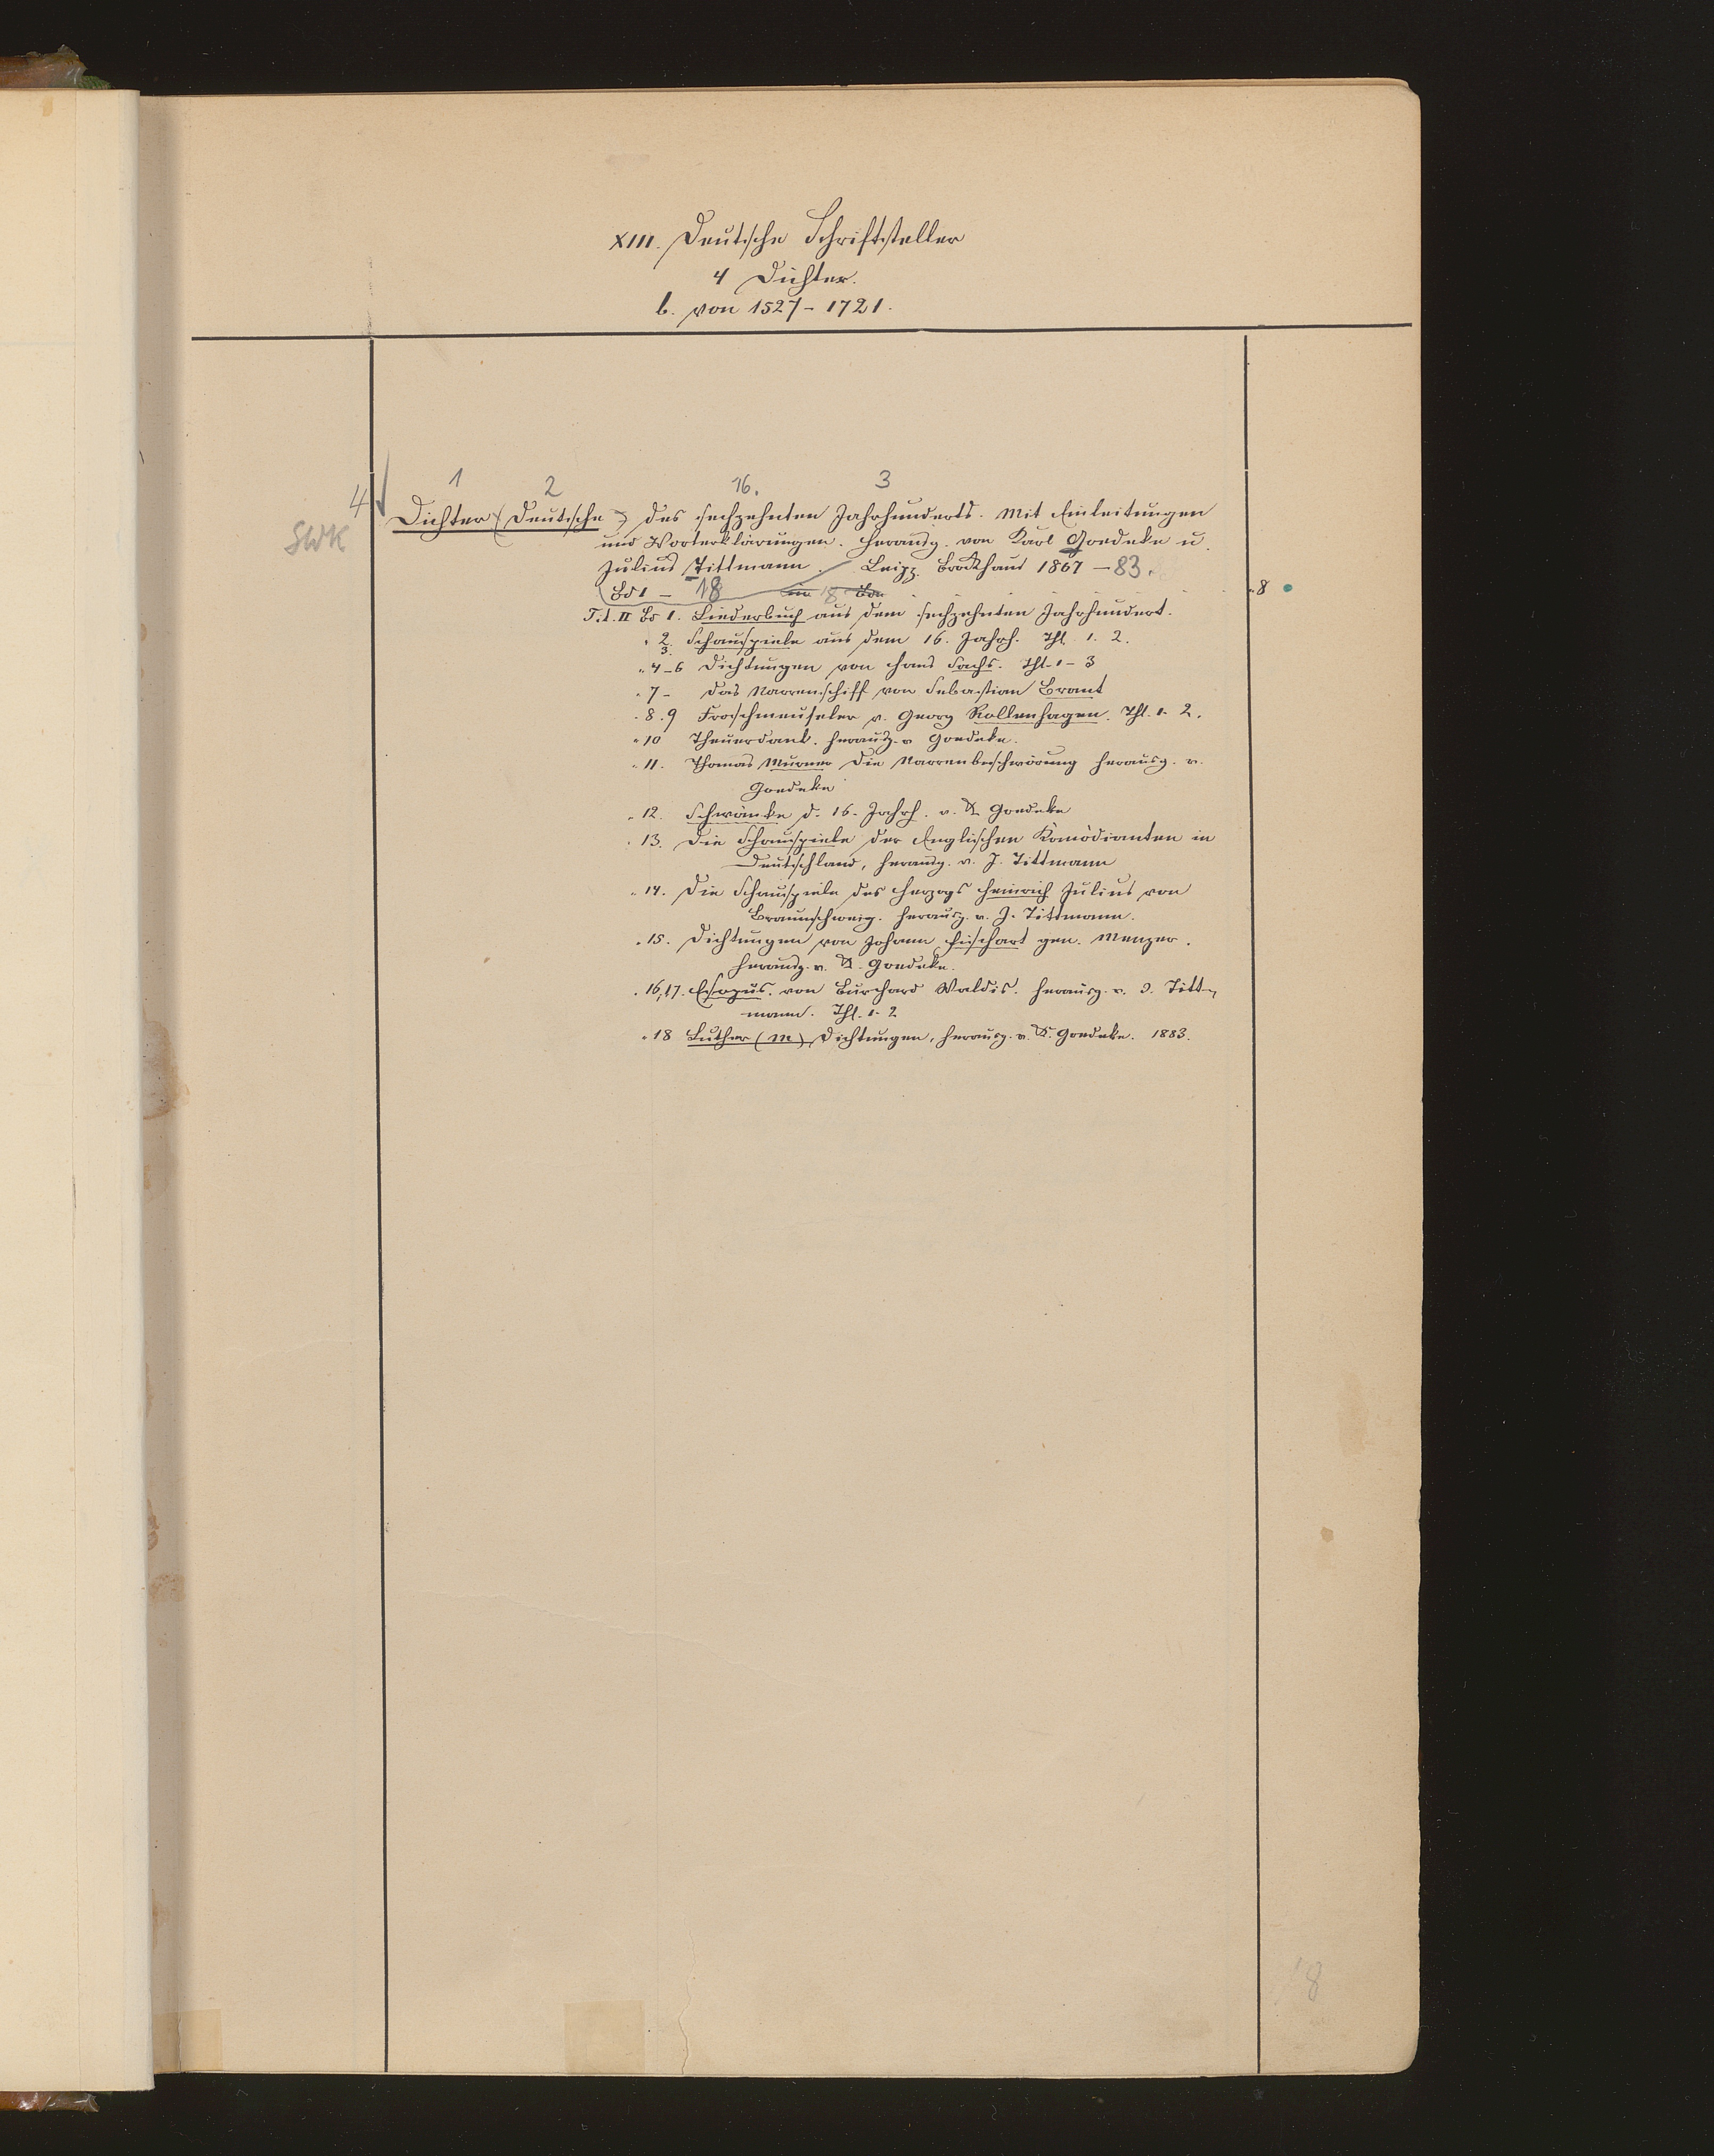 XIII. Deutsche Schriftsteller
4 Dichter.
b. von 1527 - 1721.
1 2 16. 3
4 Dichter (Deutsche) des sechzehnten Jahrhunderts. Mit Einleitungen
SWK
und Worterklärungen. Herausg. von Karl Goedeke u.
Julius Tittmann. Leipz. Brockhaus 1867 - 83.
Bd 1 - 18 in 18 Bde
8
T. d. II Bd 1. Liederbuch aus dem sechzehnten Jahrhundert.
" 2. 3. Schauspiele aus dem 16. Jahrh. Thl. 1. 2.
" 4-6 Dichtungen von Hans Sachs. Thl. 1-3
" 7- Das Narrenschiff von Sebastian Brant
" 8.9 Froschmeuseler v. Georg Rollenhagen. Thl. 1. 2.
" 10 Theuerdank. Herausg. v Goedeke.
" 11. Thomas Murner Die Narrenbeschwörung herausg. v.
Goedeke
" 12. Schwänke d. 16. Jahrh. v. K Goedeke
" 13. Die Schauspiele der Englischen Komödianten in
Deutschland, herausg. v. J. Tittmann
" 14. Die Schauspiele des Herzogs Heinrich Julius von
Braunschweig. Herausg. v. J. Tittmann.
" 15. Dichtungen von Johann Fischart gen. Menzer.
Herausg. v. K. Goedeke.
" 16,17. Esopus. von Burchard Waldis. Herausg. v. J. Titt-
mann. Thl. 1. 2
" 18 Luther (M) Dichtungen, herausg. v. K. Goedeke. 1883.
18